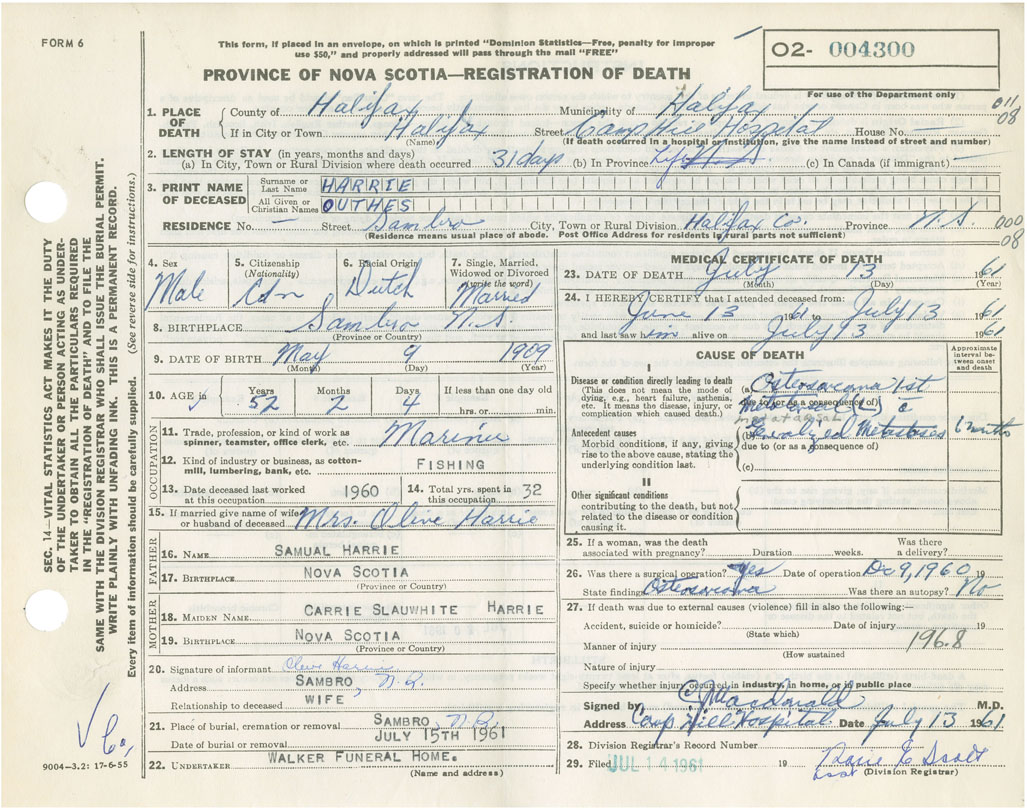 FORM 6
This form, if placed in an envelope, on which is printed "Dominion Statistics—Free, penalty for improper
use $50," and properly addressed will pass through the mail "FREE"
O2- 004300
For use of the Department only
PROVINCE OF NOVA SCOTIA—REGISTRATION OF DEATH
011
08
1. PLACE OF DEATH
County of Halifax Municipality of Halifax
If in City or Town Halifax Street Camp Hill Hospital House No. —
(Name) (If death occurred in a hospital or institution, give the name instead of street and number)
2. LENGTH OF STAY (in years, months and days)
(a) In City, Town or Rural Division where death occurred 31 days (b) In Province Life (c) In Canada (if immigrant) —
3. PRINT NAME OF DECEASED
Surname or Last Name HARRIE
All Given or Christian Names OUTHES
RESIDENCE No. — Street Sambro City, Town or Rural Division Halifax Co. Province N.S.
(Residence means usual place of abode. Post Office Address for residents in rural parts not sufficient)
000
08
4. Sex Male
5. Citizenship (Nationality) Cdn
6. Racial Origin Dutch
7. Single, Married, Widowed or Divorced (write the word) Married
8. BIRTHPLACE Sambro N.S.
(Province or Country)
9. DATE OF BIRTH May 9 1909
(Month) (Day) (Year)
10. AGE in Years 52 Months 2 Days 4 If less than one day old hrs. or min.
OCCUPATION
11. Trade, profession, or kind of work as spinner, teamster, office clerk, etc. Mariner
12. Kind of industry or business, as cotton-mill, lumbering, bank, etc. FISHING
13. Date deceased last worked at this occupation 1960
14. Total yrs. spent in this occupation 32
15. If married give name of wife or husband of deceased Mrs. Olive Harrie
FATHER
16. NAME SAMUAL HARRIE
17. BIRTHPLACE NOVA SCOTIA
(Province or Country)
MOTHER
18. MAIDEN NAME CARRIE SLAUWHITE HARRIE
19. BIRTHPLACE NOVA SCOTIA
(Province or Country)
20. Signature of informant Olive Harrie
Address SAMBRO N.S.
Relationship to deceased WIFE
21. Place of burial, cremation or removal SAMBRO N.S.
Date of burial or removal JULY 15TH 1961
22. UNDERTAKER WALKER FUNERAL HOME.
(Name and address)
MEDICAL CERTIFICATE OF DEATH
23. DATE OF DEATH July 13 1961
(Month) (Day) (Year)
24. I HEREBY CERTIFY that I attended deceased from:
June 13 1961 to July 13
and last saw him alive on July 13 1961
CAUSE OF DEATH
Approximate interval between onset and death
I
Disease or condition directly leading to death
(This does not mean the mode of dying, e.g., heart failure, asthenia, etc. It means the disease, injury, or complication which caused death.)
(a) Osteosarcoma 1st
due to (or as a consequence of)
Metatarsal (L) c̄
metatarsal
Antecedent causes
Morbid conditions, if any, giving rise to the above cause, stating the underlying condition last.
(b) Generalized Metastases 6 months
due to (or as a consequence of)
(c)
II
Other significant conditions
contributing to the death, but not related to the disease or condition causing it.
25. If a woman, was the death associated with pregnancy? Duration weeks. Was there a delivery?
26. Was there a surgical operation? Yes Date of operation Dec 9, 1960 19
State findings Osteosarcoma Was there an autopsy? No
27. If death was due to external causes (violence) fill in also the following:—
Accident, suicide or homicide? Date of injury 19
(State which)
Manner of injury 196.8
(How sustained
Nature of injury
Specify whether injury occurred in industry, in home, or in public place
Signed by C. J. Macdonald M.D.
Address Camp Hill Hospital Date July 13 1961
28. Division Registrar's Record Number
29. Filed JUL 14 1961 19
(Division Registrar)
SEC. 14—VITAL STATISTICS ACT MAKES IT THE DUTY
OF THE UNDERTAKER OR PERSON ACTING AS UNDER-
TAKER TO OBTAIN ALL THE PARTICULARS REQUIRED
IN THE "REGISTRATION OF DEATH" AND TO FILE THE
SAME WITH THE DIVISION REGISTRAR WHO SHALL ISSUE THE BURIAL PERMIT.
WRITE PLAINLY WITH UNFADING INK. THIS IS A PERMANENT RECORD.
Every item of information should be carefully supplied. (See reverse side for instructions.)
9004-3.2: 17-6-55